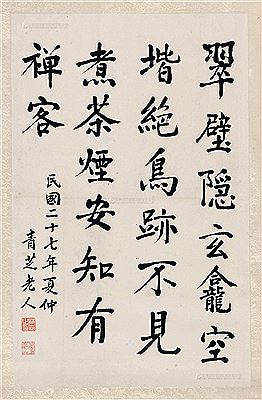 翠壁隱玄龕空
堦絶鳥跡不見
煮茶煙安知有
禅客
民國二十七年夏仲
青芝老人